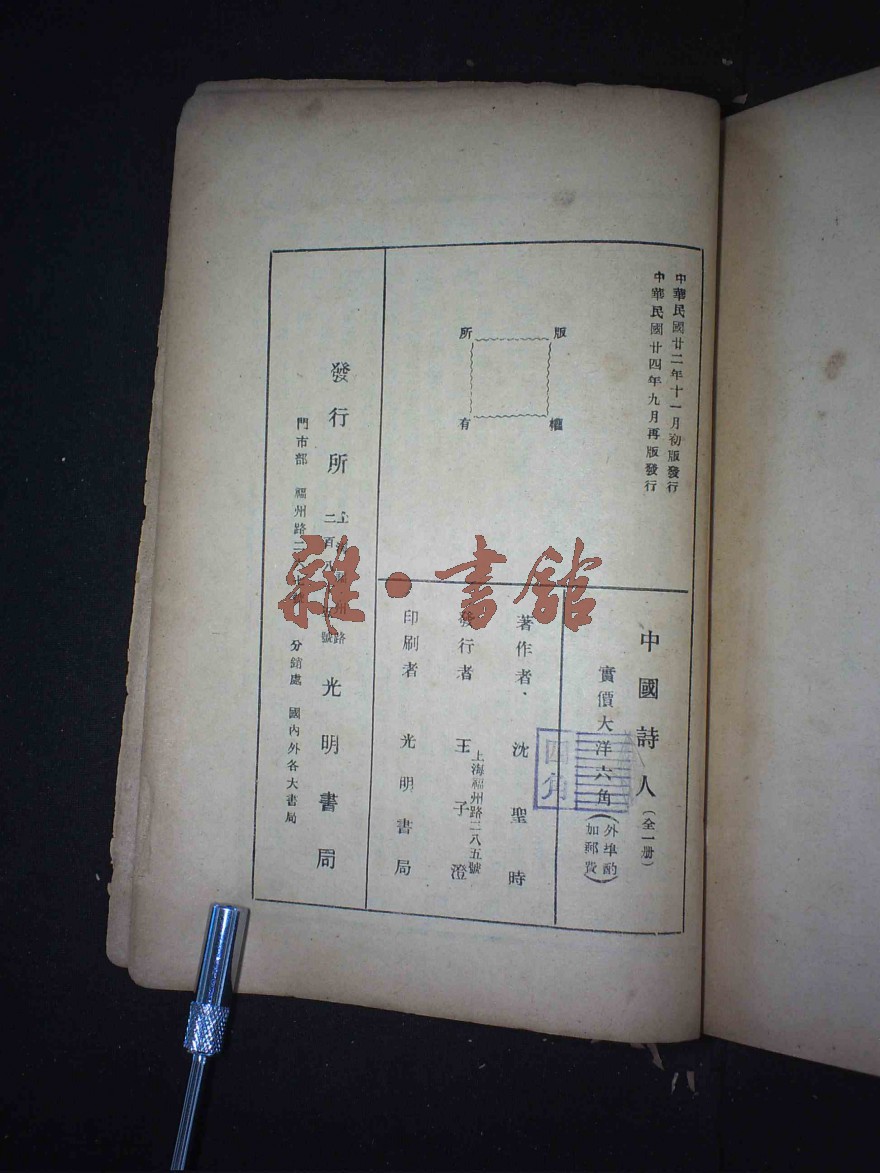 中華民國廿二年十一月初版發行
中華民國廿四年九月再版發行
版權所有
中國詩人(全一册)
實價大洋六角(外埠酌加郵費)
四角
著作者 沈聖時
發行者 王子澄
上海福州路二八五號
印刷者 光明書局
發行所
光明書局
門市部 福州路二
分銷處 國內外各大書局
雜·書館